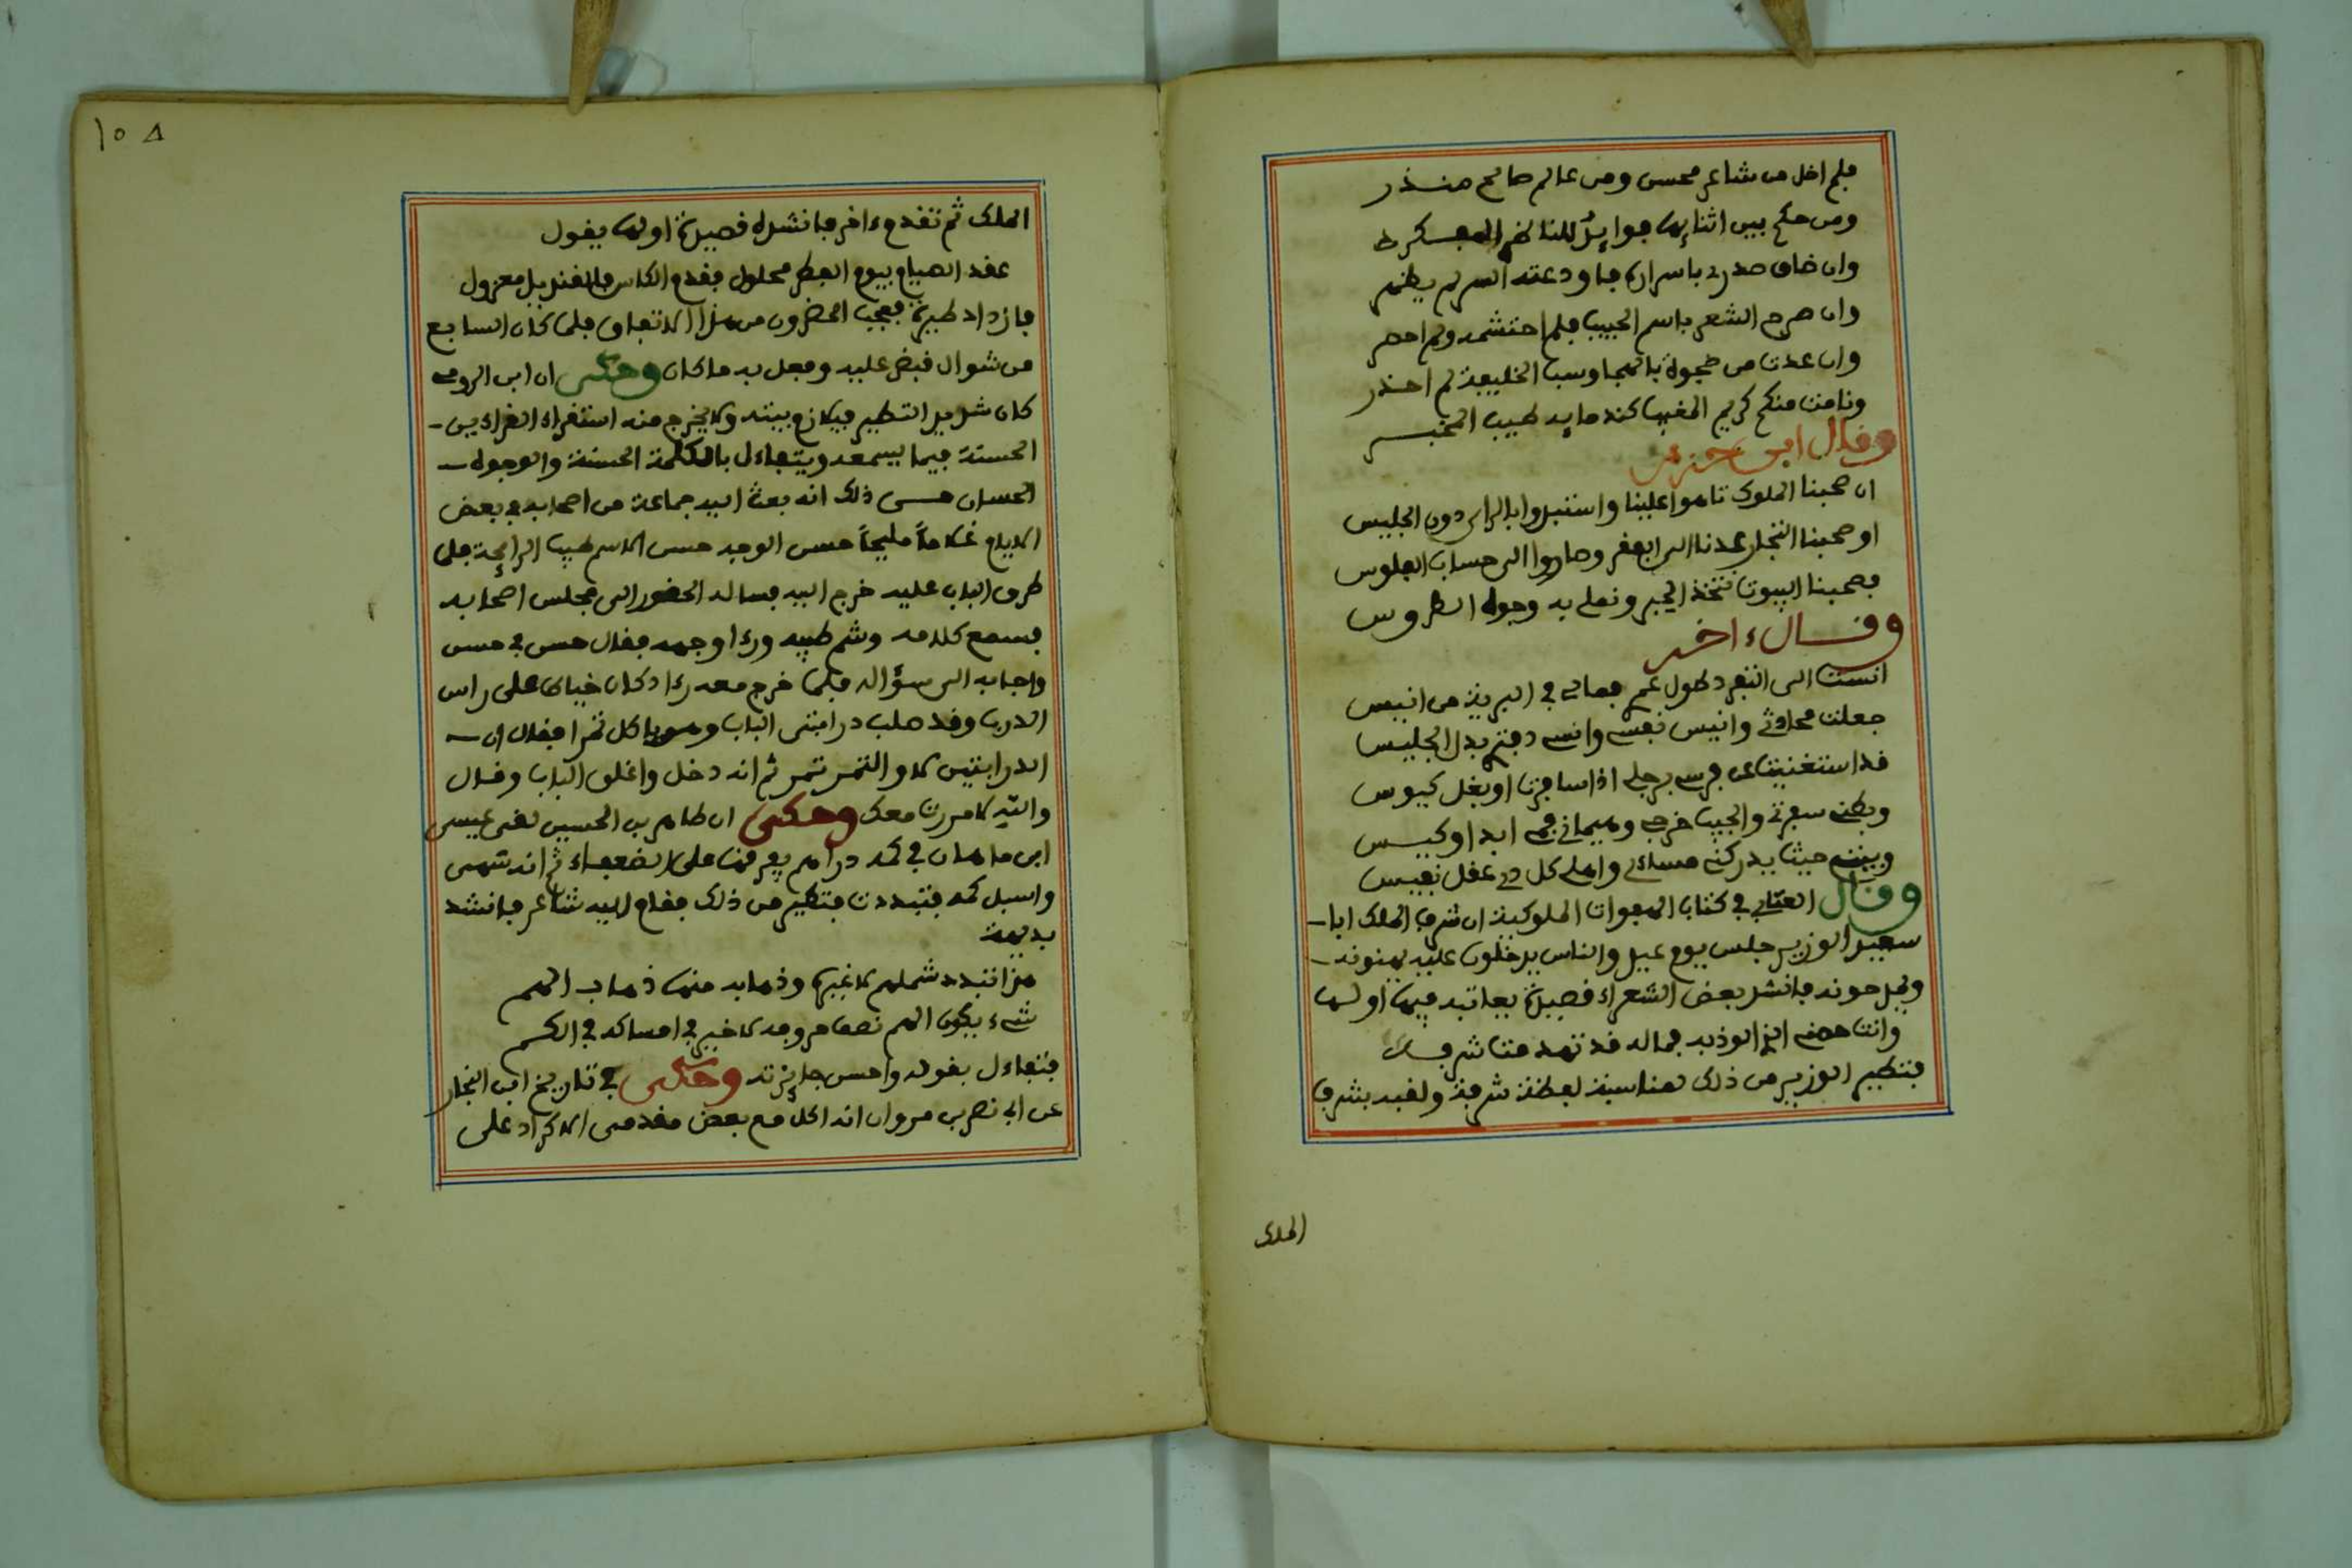 فلم اخل من شاعر محسن ومن عالم صالح منذر
ومن حكم بين اثنايها فوايد للناظر المفكر
وان ضاق صدرى باسراره فاودعته السر لم يظهر
وان صرح الشعر باسم الحبيب فلم احتشمه ولم احصر
وان عدت من ضجرة بالهجا وسب الخليفة لم احذر
ونامت منكم كريم المغيب كندمايه طيب المخبر
وقال ابن خزعر
ان صحبنا الملوك تاهوا علينا واستبدوا بالراى دون الجليس
او صحبنا التجار عدنا الى الفقر وصاروا الى حساب الفلوس
فصحبنا البيوت نتخذ الحبر ونملى به وجوه الطروس
وقال ءاخر
انست الى التفرد طول عمر فمالى فى البرية من انيس
جعلت محادثى وانيس نفسى وانسى دفترى بدل الجليس
قد استغنيت عن فرسى برجلى اذا سافرت او بغل كبوس
وبطنى سفرتى والجيب خرجى وهيمانى فمى ابدا وكيس
وبيتى حيث يدركنى مساءى واهلى كل ذى عقل نفيس
وقال العتابى فى كتاب الهفوات الملوكية ان شرف الملك ابا
سعيد الوزير جلس يوم عيد والناس يدخلون عليه يهنونه
ويمدحونه فانشد بعض الشعراء قصيدة يعاتبه فيها اولها
وانت حصنى الذى الوذ به فماله قد تهدمت شرفه
فتطير الوزير من ذلك لمناسبة لفظة شرفة ولقبه بشرف
الملك
١٥٨
الملك ثم تقدم ءاخر فانشده قصيدة اولها يقول
عقد الصيام بيوم الفطر محلول فقدم الكاس فالقنديل معزول
فازداد طيرة فعجب الحضرون من هذا الاتفاق فلما كان السابع
من شوال قبض عليه وفعل به ما كان وحكى ان ابن الرومى
كان شديد التطير فيلازم بيته ولا يخرج منه استقراء القراءين
الحسنة فيما يسمعه ويتفاءل بالكلمة الحسنة والوجوه
الحسان حسى ذلك انه بعث اليه جماعة من اصحابه فى بعض
الايام غلاما مليحا حسن الوجه حسن الاسم طيب الرايحة فلما
طرق الباب عليه خرج اليه فساله الحضور الى مجلس اصحابه
فسمع كلامه وشم طيبه ورءا وجهه فقال حسن فى حسن
واجابه الى سؤاله فلما خرج معه رءا دكان خياط على راس
الدرب وقد صلب درابتى الباب وهو ياكل تمرا فقال ان
الدرابتين لا والتمر تمر ثم انه دخل واغلق الباب وقال
والله لا مررت معك وحكى ان طاهر بن الحسين لقى عيسى
ابن ماهان فى كمه دراهم يفرقها على الضعفاء ثم انه سهى
واسبل كمه فتبددت فتطير من ذلك فقام اليه شاعر فانشد
بديهة
هذا تبدد شملهم لا غيرها وذهابه منها ذهاب الهم
شىء يكون الهم نصف حروفه لا خير فى امساكه فى الكم
فتفاءل بقوله واحسن جايزته وحكى فى تاريخ ابن النجار
عن ابى نصر بن مروان انه اكل مع بعض مقدمى الاكراد على